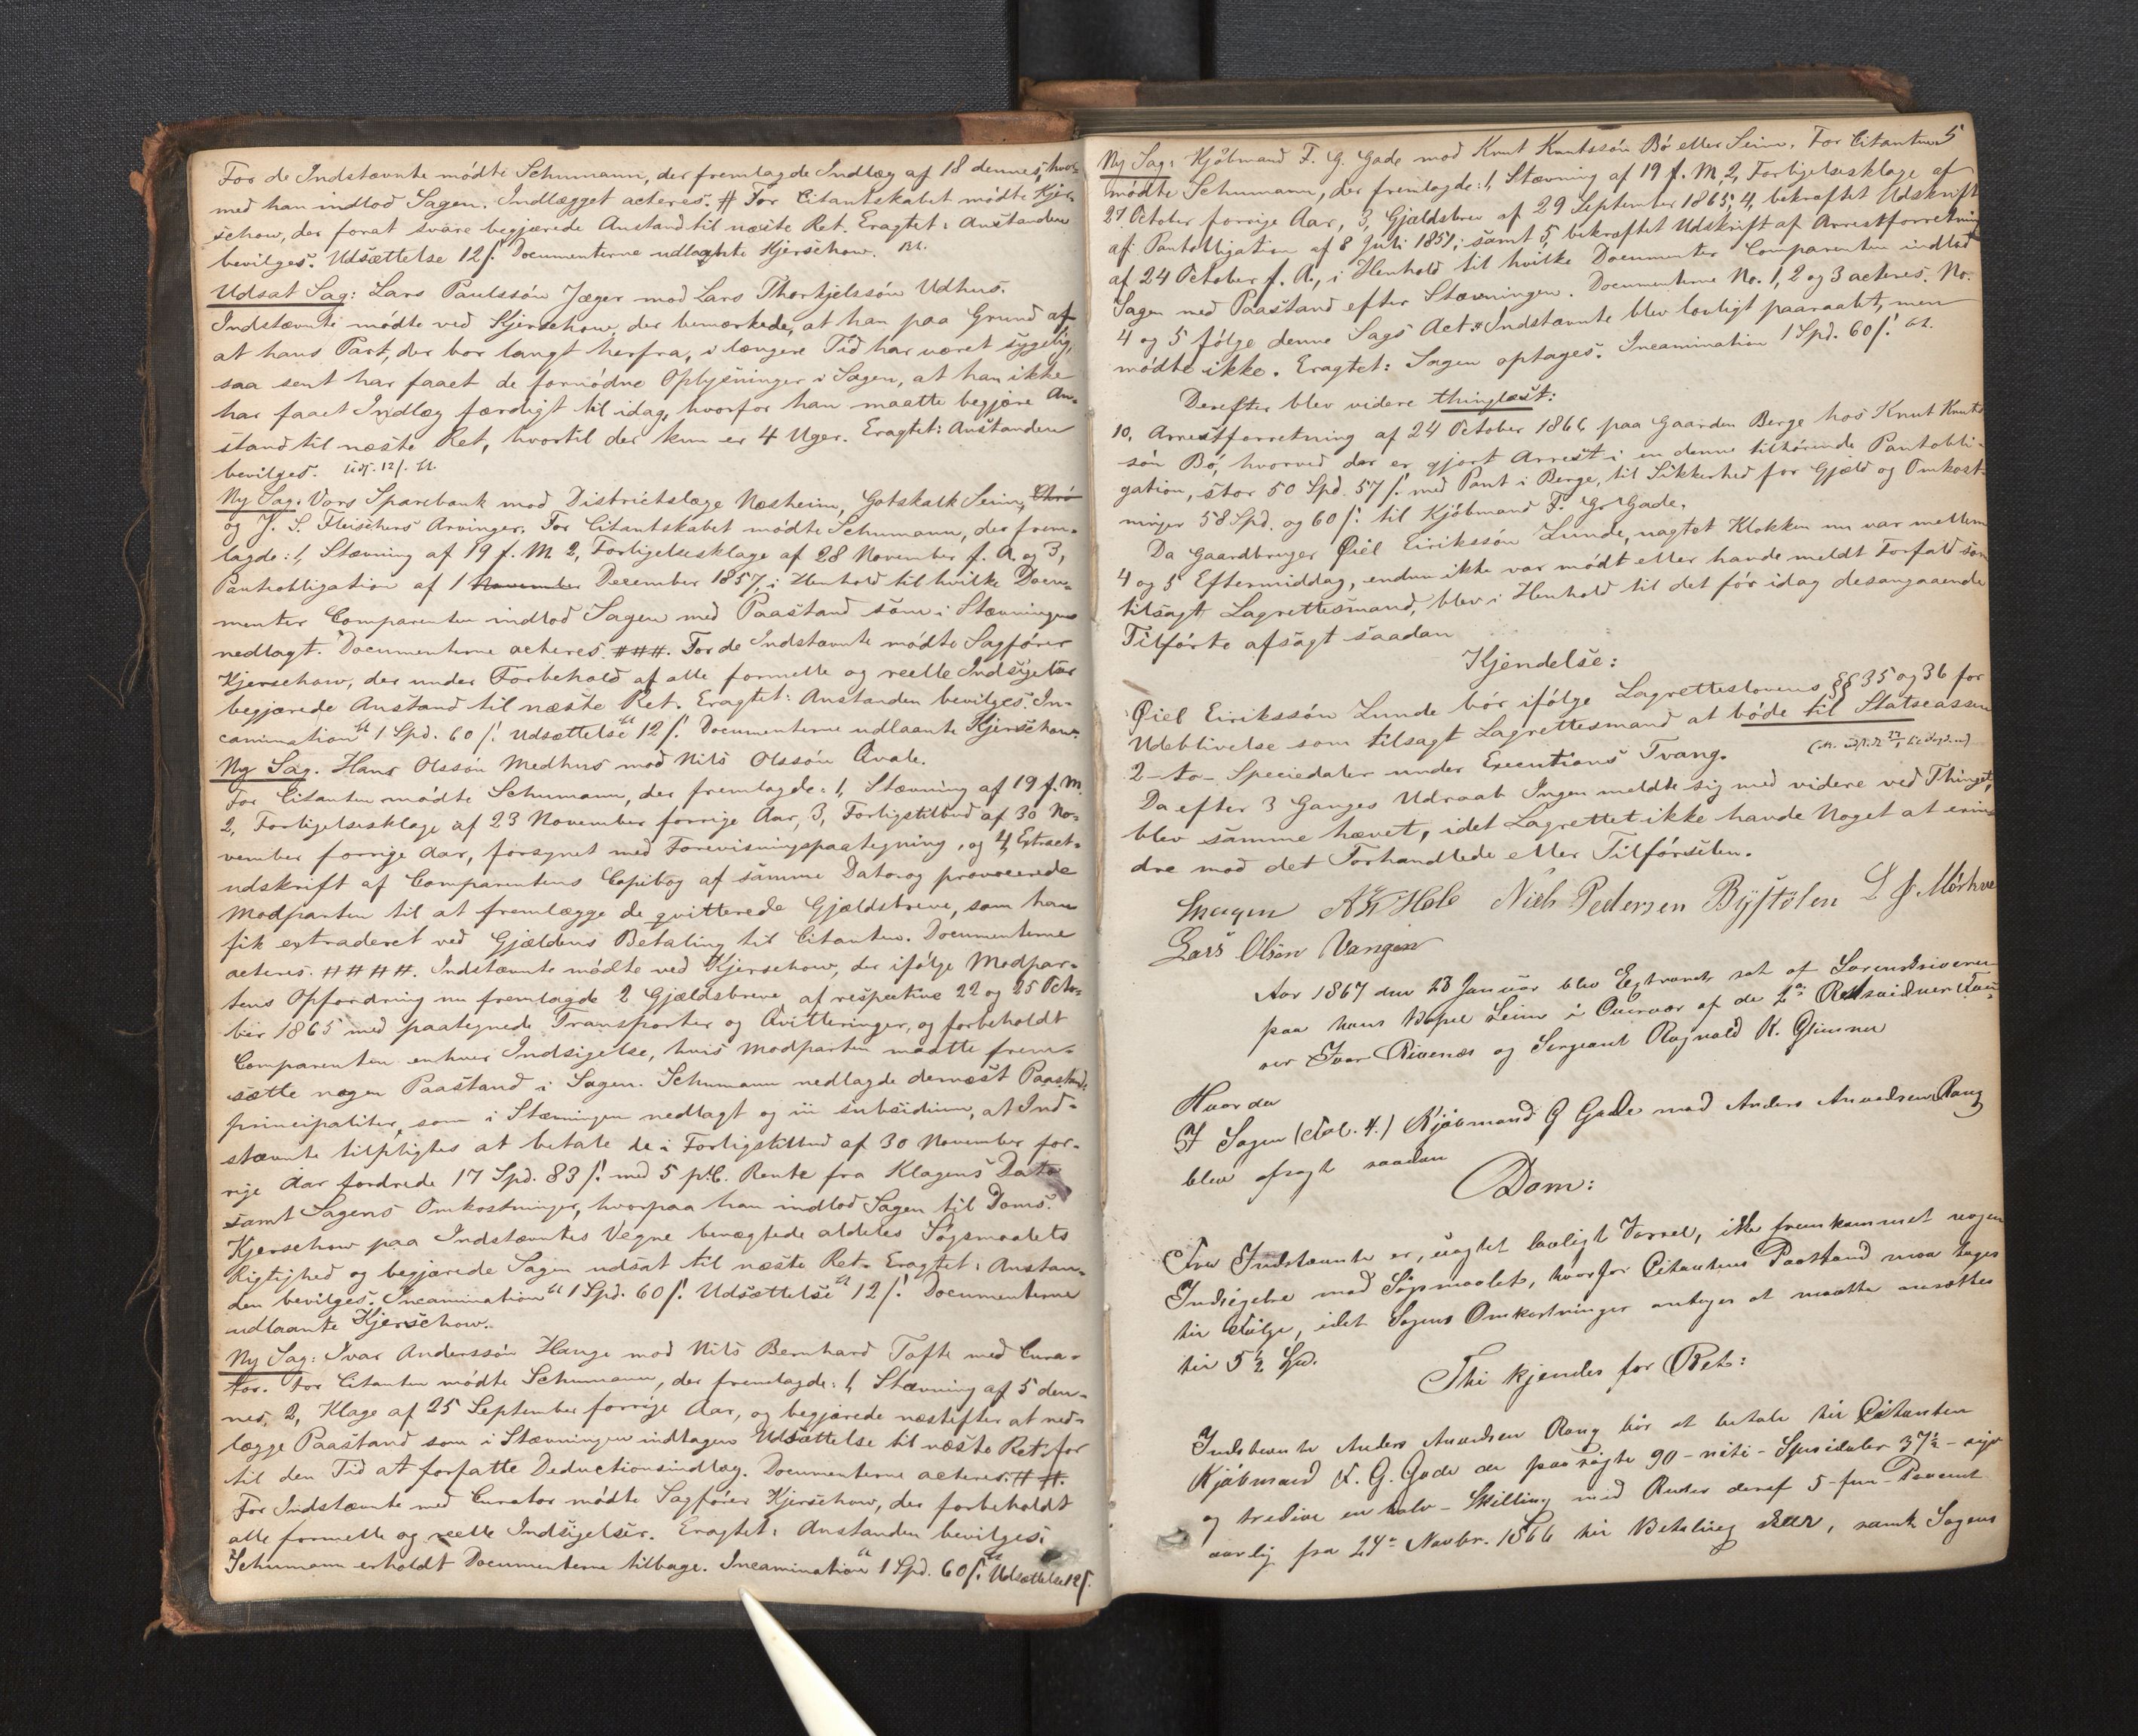 For de Indstævnte mødte Schumann, der fremlagde Indlæg af 18 dennes, hvor-
med han indlod Sagen. Indlægget acteres. # For Citantskabet mødte Kjer-
schow, der forat svare begjærede Anstand til næste Ret. Eragtet: Anstanden
bevilges. Udsættelse 12 ſ. Documenterne udlaante Kjerschow.
Udsat Sag: Lars Paulssøn Jæger mod Lars Thorkjelssøn Udhus.
Indstævnte mødte ved Kjerschow, der bemærkede, at han paa Grund af
at hans Part, der bor langt herfra, i længere Tid har været sygelig,
saa sent har faaet de fornødne Oplysninger i Sagen, at han ikke
har faaet Indlæg færdigt til idag, hvorfor han maatte begjære An-
stand til næste Ret, hvortil der kun er 4 Uger. Eragtet: Anstanden
bevilges. Uds. 12 ſ.
Ny Sag. Vors Sparebank mod Districtslæge Næsheim, Gotskalk Seim,
og J. S. Fleischers Arvinger. For Citantskabet mødte Schumann, der frem-
lagde: 1, Stævning af 19 f. M. 2, Forligelsesklage af 28 November f. A. og 3,
Pantobligation af 1 November December 1857, i Henhold til hvilke Docu-
menter Comparenten indlod Sagen med Paastand som i Stævningen
nedlagt. Documenterne acteres. ###. For de Indstævnte mødte Sagfører
Kjerschow, der under Forbehold af alle formelle og reelle Indsigelser
begjærede Anstand til næste Ret. Eragtet: Anstanden bevilges. In-
camination 1 Spd. 60 ſ. Udsættelse 12 ſ. Documenterne udlaante Kjerschow.
Ny Sag. Hans Olssøn Medhus mod Nils Olssøn Qvale.
For Citanten mødte Schumann, der fremlagde: 1, Stævning af 19 f. M.
2, Forligelsesklage af 23 November forrige Aar, 3, Forligstilbud af 30 No-
vember forrige Aar, forsynet med Forevisningspaategning, og 4, Extract-
udskrift af Comparentens Copibog af samme Dato og provocerede
Modparten til at fremlægge de qvitterede Gjældsbreve, som han
fik extraderet ved Gjældens Betaling til Citanten. Documenterne
acteres. ####. Indstævnte mødte ved Kjerschow, der ifølge Modpar-
tens Opfordring nu fremlagde 2 Gjældsbreve af respective 22 og 25 Octo-
ber 1865 med paategnede Transporter og Qvitteringer, og forbeholdt
Comparenten enhver Indsigelse, hvis Modparten maatte frem-
sætte nogen Paastand i Sagen. Schumann nedlagde dernæst Paastand:
principaliter, som i Stævningen nedlagt og in subsidium, at Ind-
stævnte tilpligtes at betale de i Forligstilbud af 30 November for-
rige Aar fordrede 17 Spd. 83 ſ. med 5 pC. Rente fra Klagens Dato
samt Sagens Omkostninger, hvorpaa han indlod Sagen til Doms.
Kjerschow paa Indstævntes Vegne benægtede aldeles Søgsmaalets
Rigtighed og begjærede Sagen udsat til næste Ret. Eragtet: Anstan-
den bevilges. Incamination 1 Spd. 60 ſ. Udsættelse 12 ſ. Documenterne
udlaante Kjerschow.
Ny Sag: Ivar Anderssøn Hauge mod Nils Bernhard Tofte med Cura-
tor. For Citanten mødte Schumann, der fremlagde: 1, Stævning af 5 den-
nes, 2, Klage af 25 September forrige Aar, og begjærede næstefter at ned-
lægge Paastand som i Stævningen indtagen Udsættelse til næste Ret, for
til den Tid at forfatte Deductionsindlæg. Documenterne acteres. ##.
For Indstævnte med Curator mødte Sagfører Kjerschow, der forbeholdt
alle formelle og reelle Indsigelser. Eragtet: Anstanden bevilges.
Schumann erholdt Documenterne tilbage. Incamination 1 Spd. 60 ſ. Udsættelse 12 ſ.
5
Ny Sag: Kjøbmand F. G. Gade mod Knut Knutssøn Bø eller Seim. For Citanten
mødte Schumann, der fremlagde: 1, Stævning af 19 f. M. 2, Forligelsesklage af
27 October forrige Aar, 3, Gjældsbrev af 29 September 1865, 4, bekræftet Udskrift
af Pantobligation af 8 Juli 1851, samt 5, bekræftet Udskrift af Arrestforretning
af 24 October f. A., i Henhold til hvilke Documenter Comparenten indlod
Sagen med Paastand efter Stævningen. Documenterne No. 1, 2 og 3 acteres. No.
4 og 5 følge denne Sags Act. Indstævnte blev lovligt paaraabt, men
mødte ikke. Eragtet: Sagen optages. Incamination 1 Spd. 60 ſ.
Derefter blev videre thinglæst:
10, Arrestforretning af 24 October 1866 paa Gaarden Berge hos Knut Knuts-
søn Bø, hvorved der er gjort Arrest i en denne tilhørende Pantobli-
gation, stor 50 Spd. 57 ſ. med Pant i Berge, til Sikkerhed for Gjæld og Omkost-
ninger 58 Spd. og 60 ſ. til Kjøbmand F. G. Gade.
Da Gaardbruger Øiel Eirikssøn Lunde, uagtet Klokken nu var mellem
4 og 5 Eftermiddag, endnu ikke var mødt eller havde meldt Forfald som
tilsagt Lagrettesmand, blev i Henhold til det før idag desangaaende
Tilførte afsagt saadan
Kjendelse:
Øiel Eirikssøn Lunde bør ifølge Lagretteslovens §§ 35 og 36 for
Udeblivelse som tilsagt Lagrettesmand at bøde til Statscassen
2 -to- Speciedaler under Executions Tvang.
Da efter 3 Ganges Udraab Ingen meldte sig med videre ved Thinget,
blev samme hævet, idet Lagrettet ikke havde Noget at erin-
dre mod det Forhandlede eller Tilførselen.
Niels Pedersen Bystølen
Lars Olsøn Vangen
Aar 1867 den 28 Januar blev Extraret sat af Sorenskriveren
paa hans Bopæl Seim i Overvær af de 2de Retsvidner
Ivar Rivenæs og Sergeant Ragnald K.
Hvorda
I Sagen (Fol. 4.) Kjøbmand G Gade mod Anders Amundsen Rong
blev afsagt saadan
Dom:
Fra Indstævnte er, uagtet lovligt Varsel, ikke fremkommet nogen
Indsigelse mod Søgsmaalet, hvorfor Citantens Paastand maa tages
til Følge, idet Sagens Omkostninger antages at maatte ansættes
til 5½ Spd.
Thi kjendes for Ret:
Indstævnte Anders Amundsen Rong bør at betale til Citanten
Kjøbmand F. G. Gade de paasøgte 90 - niti - Speciedaler 37½ - syv
og tredive en halv - Skilling med Renter deraf 5 - fem - Procent
aarlig fra 24de Novbr. 1866 til Betaling skeer, samt Sagens